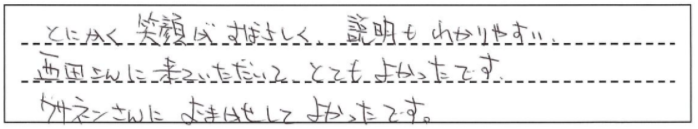 とにかく笑顔がすばらしく、説明もわかりやすい、
西田さんに来ていただいて、とてもよかったです。
クサネンさんにおまかせしてよかったです。